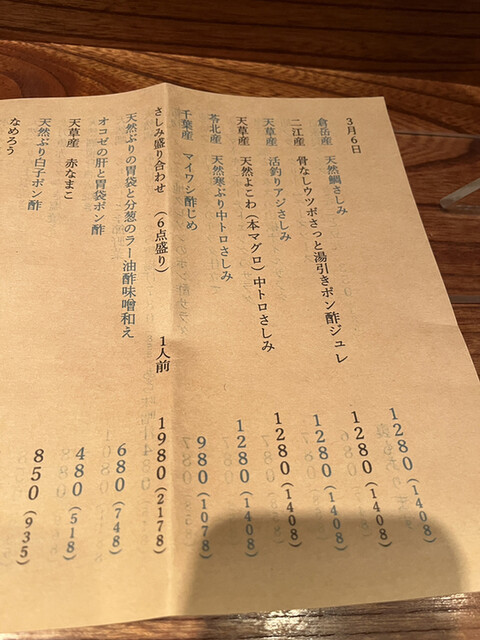 3月6日
倉岳産 天然鯛さしみ 1280(1408)
二江産 骨なしウツボさっと湯引きポン酢ジュレ 1280(1408)
天草産 活釣りアジさしみ 1280(1408)
天草産 天然よこわ(本マグロ)中トロさしみ 1280(1408)
苓北産 天然寒ぶり中トロさしみ 1280(1408)
千葉産 マイワシ酢じめ 980(1078)
さしみ盛り合わせ (6点盛り) 1人前 1980(2178)
天然ぶりの胃袋と分葱のラー油酢味噌和え
オコゼの肝と胃袋ポン酢 680(748)
天草産 赤なまこ 480(518)
天然ぶり白子ポン酢 850(935)
なめろう